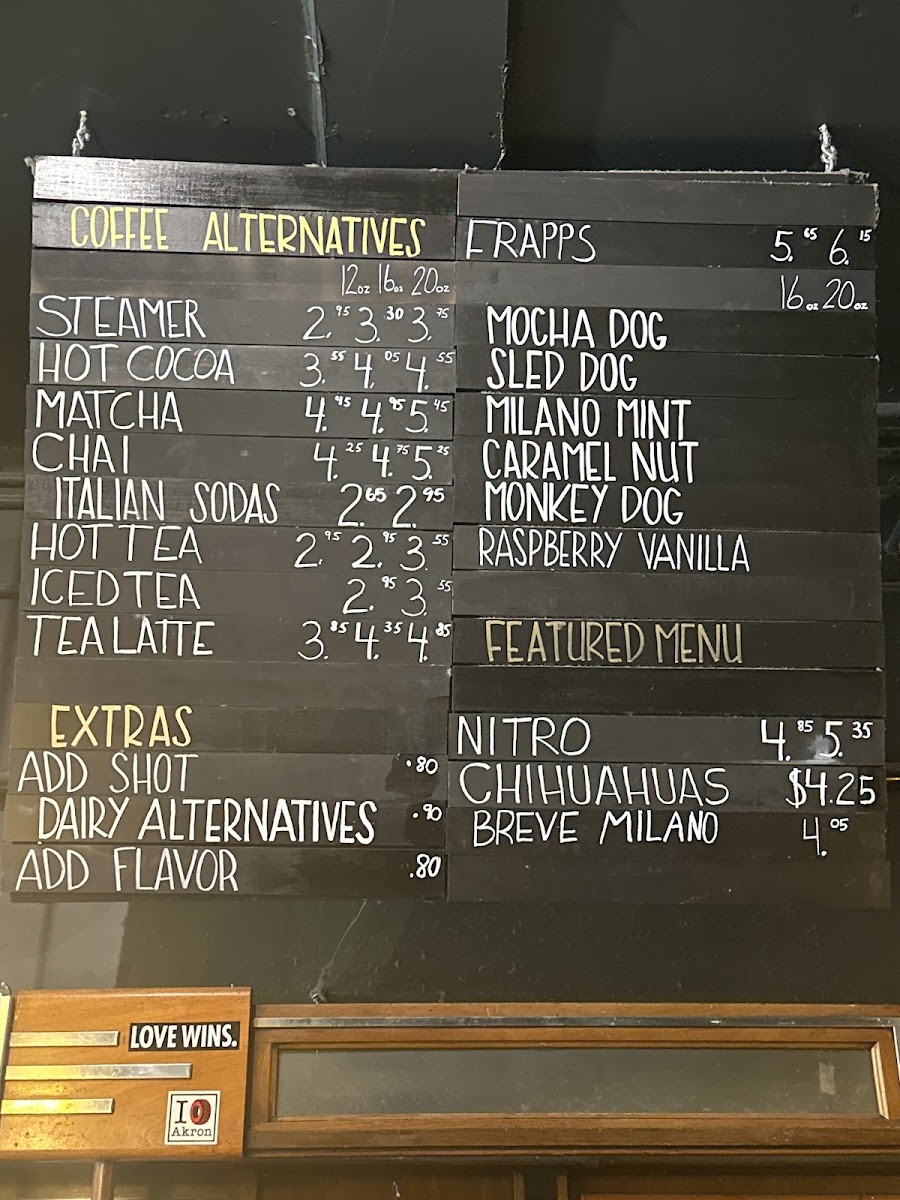 COFFEE ALTERNATIVES
12oz 16oz 20oz
STEAMER 2.95 3.30 3.75
HOT COCOA 3.55 4.05 4.55
MATCHA 4.45 4.95 5.45
CHAI 4.25 4.75 5.25
ITALIAN SODAS 2.65 2.95
HOT TEA 2.95 2.95 3.55
ICED TEA 2.95 3.55
TEA LATTE 3.85 4.35 4.85
EXTRAS
ADD SHOT .80
DAIRY ALTERNATIVES .90
ADD FLAVOR .80
FRAPPS 5.65 6.15
16oz 20oz
MOCHA DOG
SLED DOG
MILANO MINT
CARAMEL NUT
MONKEY DOG
RASPBERRY VANILLA
FEATURED MENU
NITRO 4.85 5.35
CHIHUAHUAS $4.25
BREVE MILANO 4.05
LOVE WINS.
I
Akron